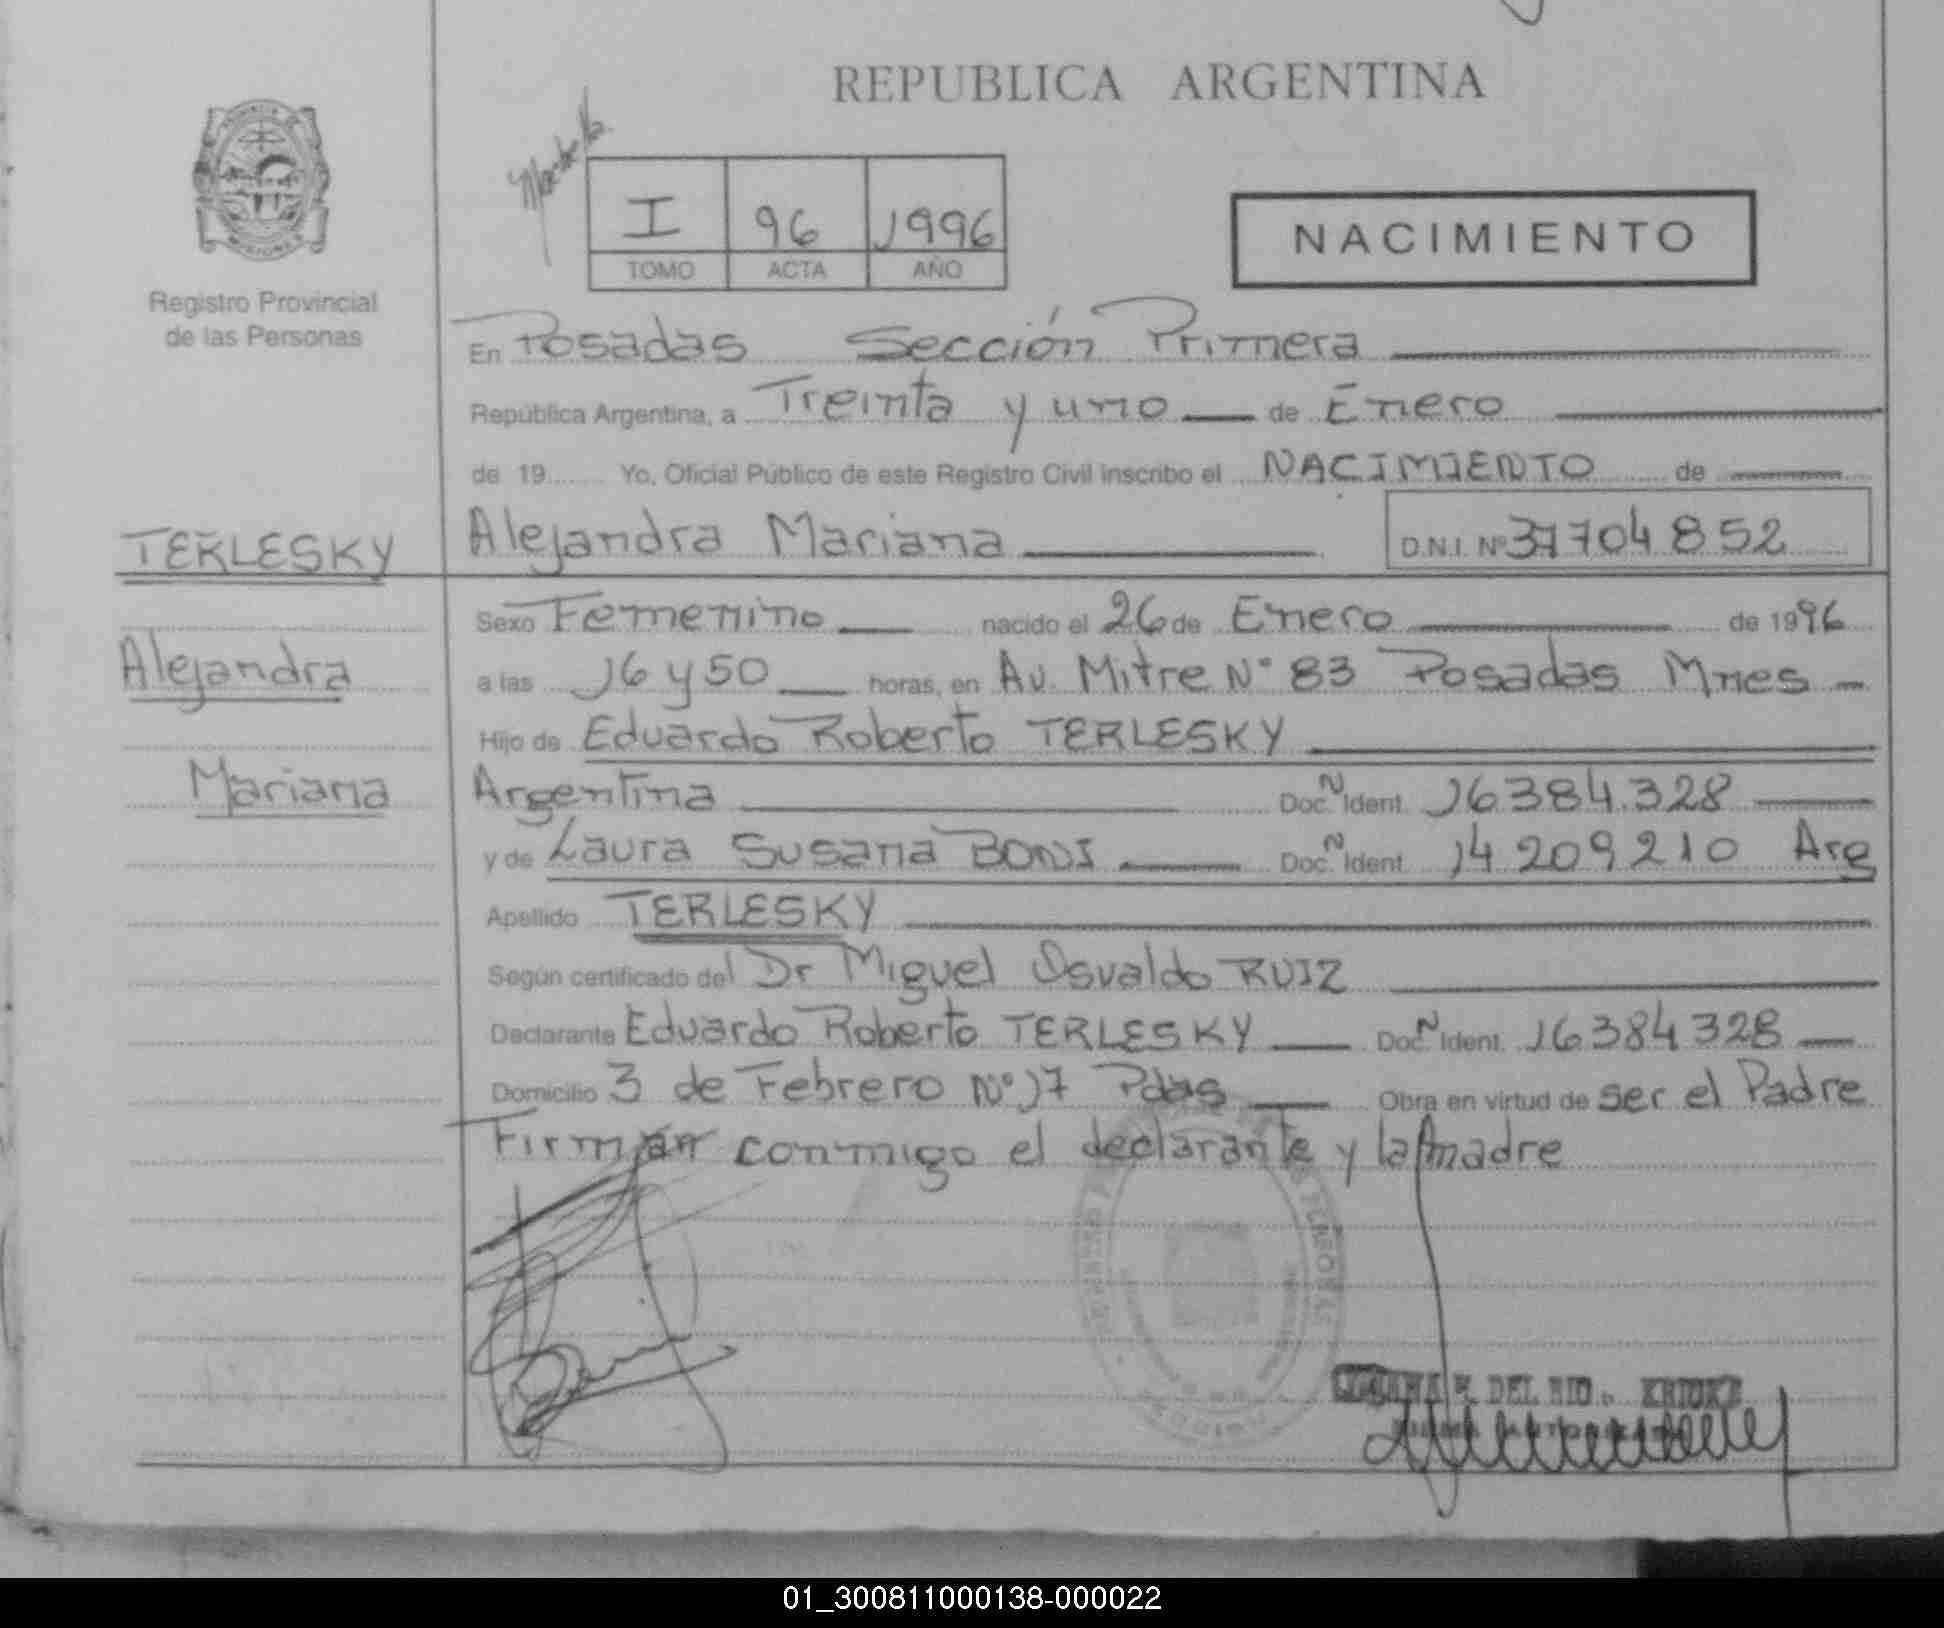 REPUBLICA ARGENTINA
I 96 1996
TOMO ACTA AÑO
NACIMIENTO
MISIONES
Registro Provincial
de las Personas
En Posadas Sección Primera
República Argentina, a Treinta y uno de Enero
de 19 Yo, Oficial Público de este Registro Civil inscribo el NACIMIENTO de
TERLESKY
Alejandra Mariana D.N.I. Nº 37704852
Alejandra
Mariana
Sexo Femenino nacido el 26 de Enero de 1996
a las 16 y 50 horas, en Av. Mitre Nº 83 Posadas Mnes
Hijo de Eduardo Roberto TERLESKY
Argentina Doc. N Ident. 16384.328
y de Laura Susana BONS Doc. N Ident. 14209210 Arg
Apellido TERLESKY
Según certificado del Dr Miguel Osvaldo RUIZ
Declarante Eduardo Roberto TERLESKY Doc. N Ident. 16384328
Domicilio 3 de Febrero Nº 17 Pdas Obra en virtud de ser el Padre
Firman conmigo el declarante y la madre
DEL RIO
01_300811000138-000022